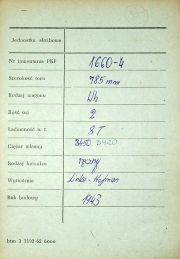 Jednostka służbowa
Nr inwentarza PKP 1660-4
Szerokość toru 785 mm
Rodzaj wagonu Wh
Ilość osi 2
Ładowność w t. 8T
Ciężar własny 3450 3420
Rodzaj hamulca ręczny
Wytwórnia Linke-Hofman
Rok budowy 1943